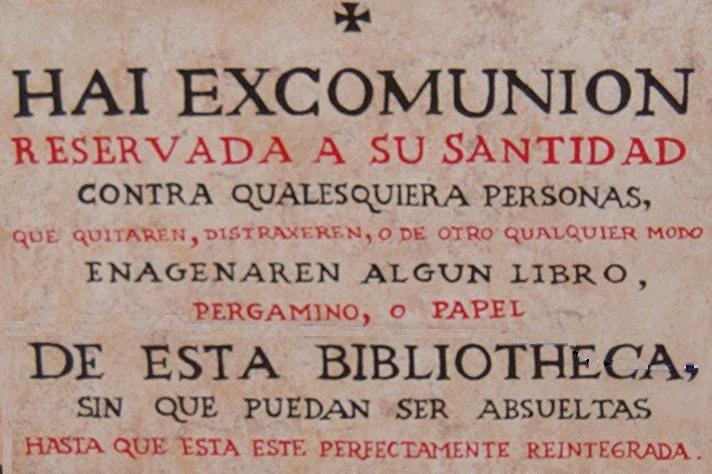 HAI EXCOMUNION
RESERVADA A SU SANTIDAD
CONTRA QUALESQUIERA PERSONAS,
QUE QUITAREN, DISTRAXEREN, O DE OTRO QUALQUIER MODO
ENAGENAREN ALGUN LIBRO,
PERGAMINO, O PAPEL
DE ESTA BIBLIOTHECA,
SIN QUE PUEDAN SER ABSUELTAS
HASTA QUE ESTA ESTE PERFECTAMENTE REINTEGRADA.